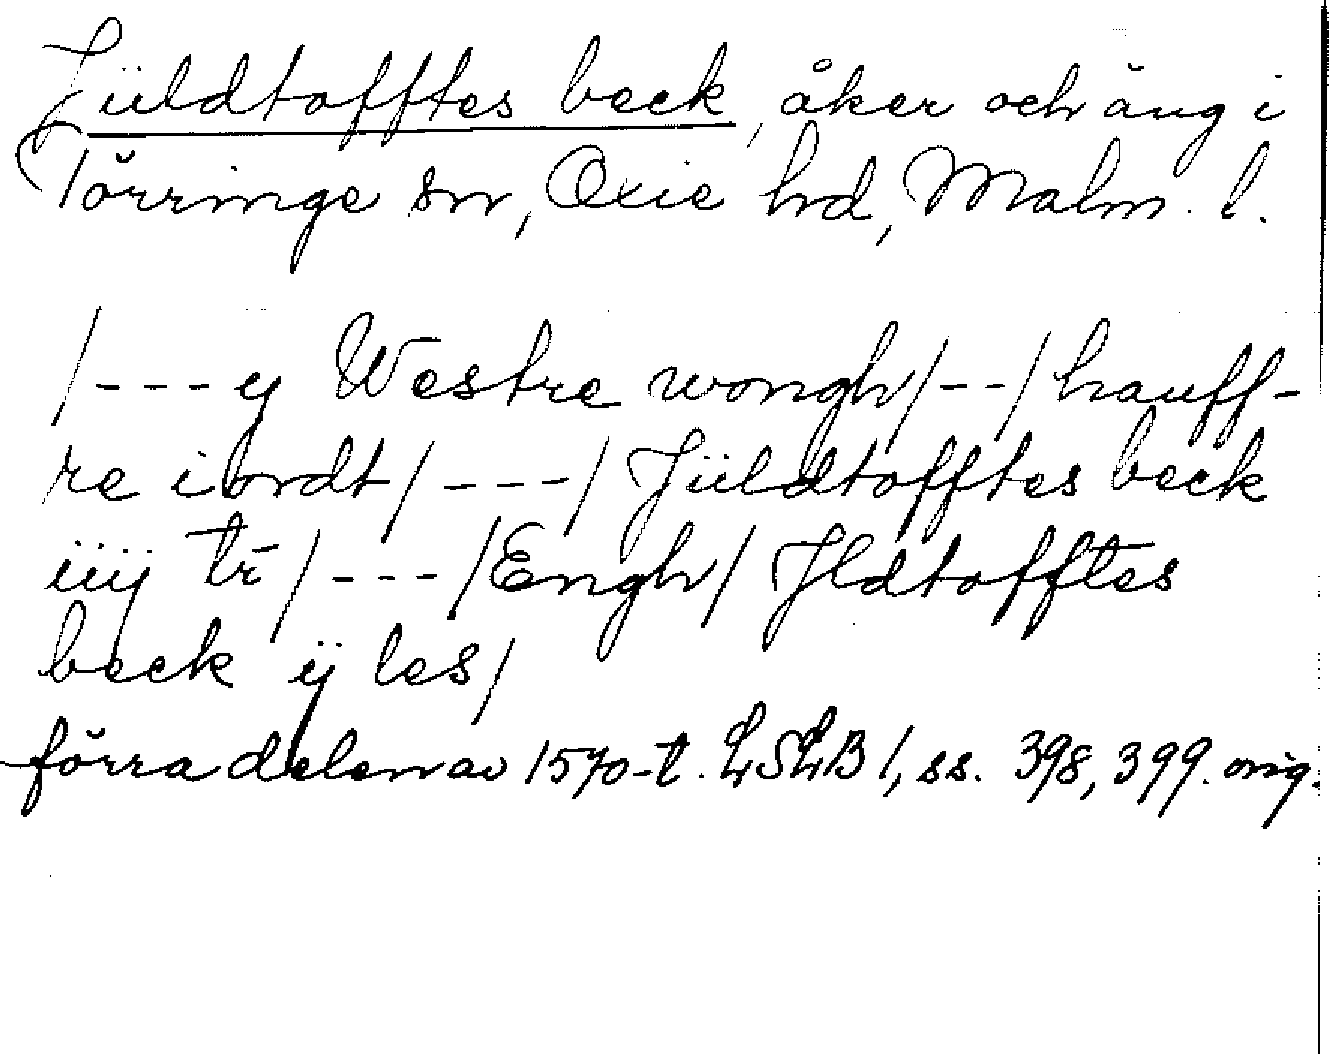 Jüldtofftes beck, åker och äng i
Törringe sn, Oxie hd, Malm. l.
/---y Westre wongh/--/hauff-
re iordt/---/Jüldtofftes beck
iiij tr̄/---/Engh/Jldtofftes
beck ij les/
förra delen av 1570-t. LSLB 1, ss. 398, 399. orig.